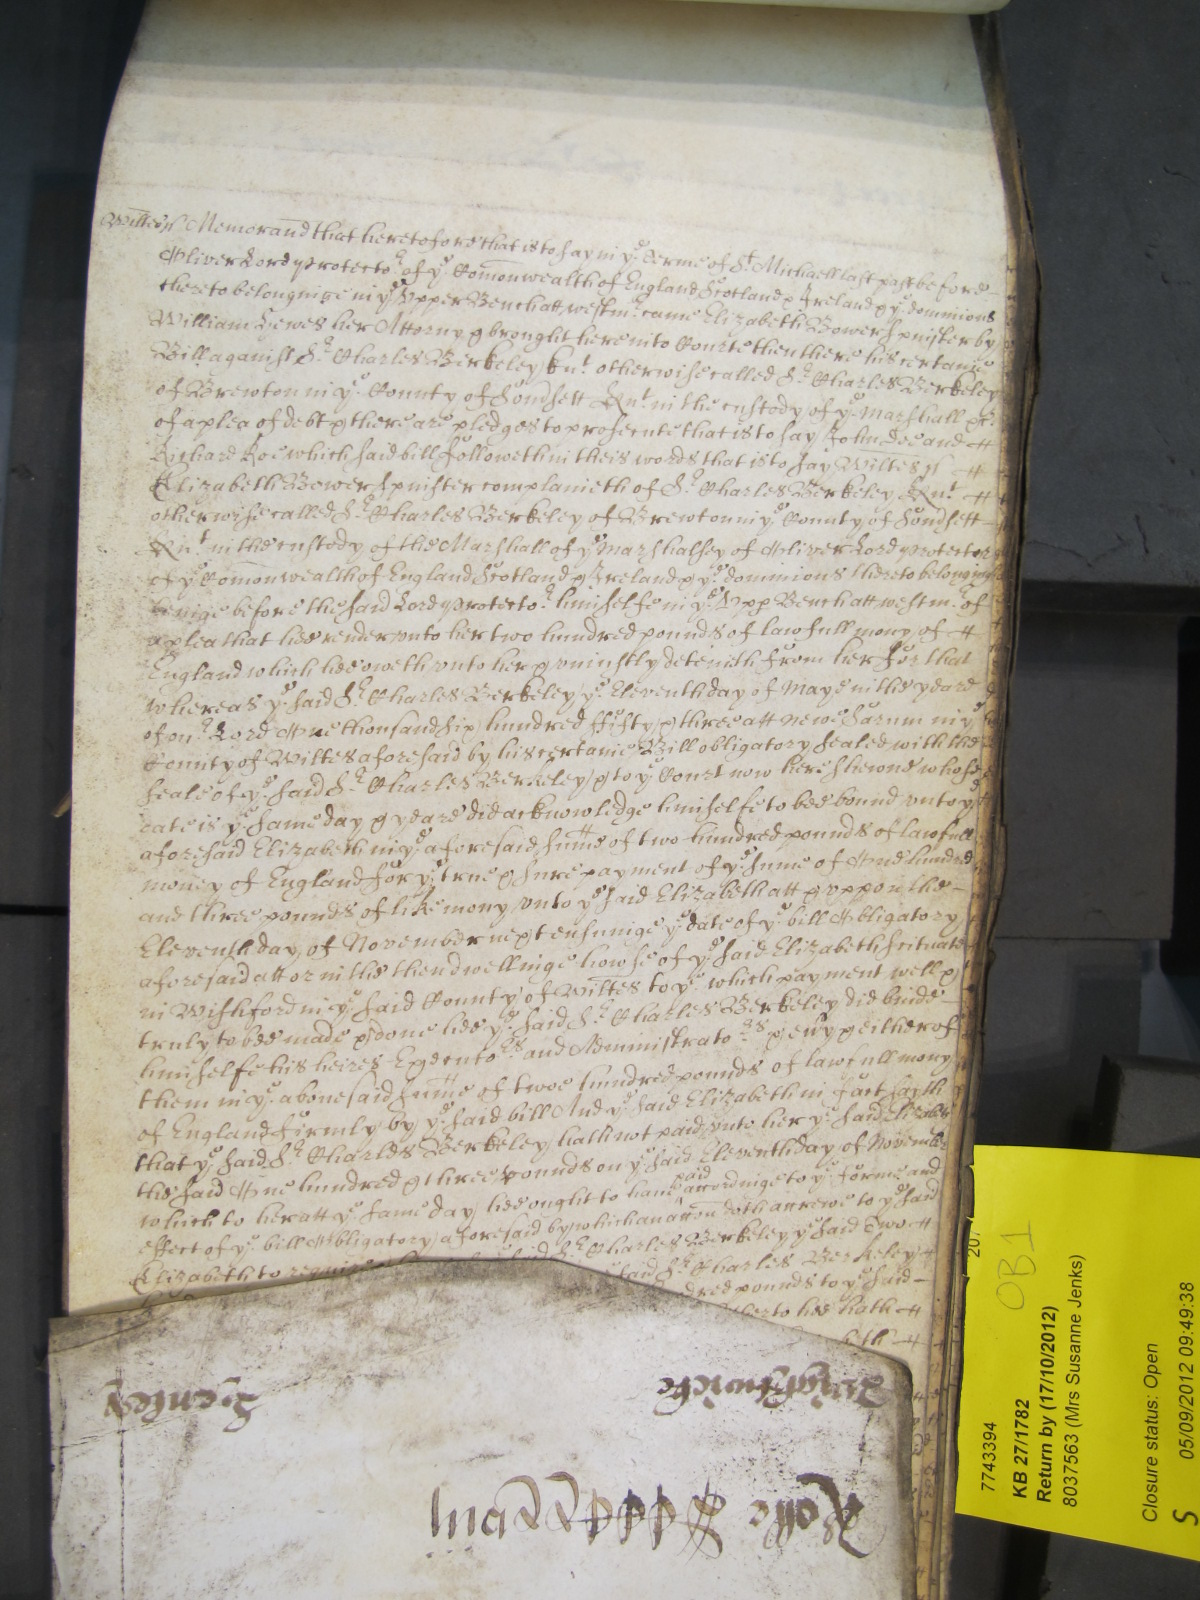 Wiltes sc Memorand that heretofore that is to say in ye Terme of St Michaell last past before
Oliver Lord Protector of ye Comonwealth of England Scotland & Ireland & ye dominions
thereto belonginge in ye Upper Bench att westmr came Elizabeth Bower Spinster by
William Lewes her Attorny & brought here into Courte then there his certaine
Bill against Sr Charles Berkeley knt otherwise called Sr Charles Berkeley
of Brewton in ye County of Somsett Knt in the custody of ye Marshall &c
of a plea of debt & there are pledges to prosecute that is to say John Doe and
Richard Roe which said bill followeth in theis words that is to say Wiltes sc
Elizabeth Bower Spinster complaineth of Sr Charles Berkeley Knt
otherwise called Sr Charles Berkeley of Brewton in ye County of Somsett
Knt in the custody of the Marshall of ye Marshalsey of Oliver Lord Protector
of ye Comonwealth of England Scotland & Ireland & ye dominions thereto belonging
beinge before the said Lord Protector himselfe in ye Upp Bench att westmr of
a plea that hee render unto her two hundred pounds of lawfull mony of
England which hee oweth unto her & uniustly deteinith from her For that
whereas ye said Sr Charles Berkeley ye Eleventh day of Maye in the yeare
of our Lord One thousand six hundred ffifty & three att newe Sarum in ye
County of Wiltes aforesaid by his certaine Bill obligatory sealed with the
seale of ye said Sr Charles Berkeley & to ye Court now here shewne whose
date is ye same day & yeare did acknowledge himselfe to bee bound unto ye
aforesaid Elizabeth in ye aforesaid sume of two hundred pounds of lawfull
money of England for ye true & sure payment of ye sume of One hundred
and three pounds of like mony unto ye said Elizabeth att & uppon the
Eleventh day of November next ensuinge ye date of ye bill Obligatory
aforesaid att or in the then dwellinge howse of ye said Elizabeth scituate
in Wishford in ye said County of Wiltes to ye which payment well &
truly to bee made & done hee ye said Sr Charles Berkeley did binde
himselfe his heires Executors and Administrators & evy & either of
them in ye abovesaid sume of twoe hundred pounds of lawfull mony
of England firmly by ye said bill And ye said Elizabeth in fact saith
that ye said Sr Charles Berkeley hath not paid unto her ye said Elizabeth
the said One hundred & three pounds on ye said Eleventh day of November
which to her att ye same day hee ought to have paid accordinge to ye forme and
effect of ye bill Obligatory aforesaid by which an accon doth accrewe to ye said
Elizabeth to require said Sr Charles Berkeley ye said twoe
said Sr Charles Berkeley
dred pounds to ye said
therto hee hath
hath
Rolle
7743394
KB 27/1782
Return by (17/10/2012)
8037563 (Mrs Susanne Jenks)
Closure status: Open
05/09/2012 09:49:38
S
OB1